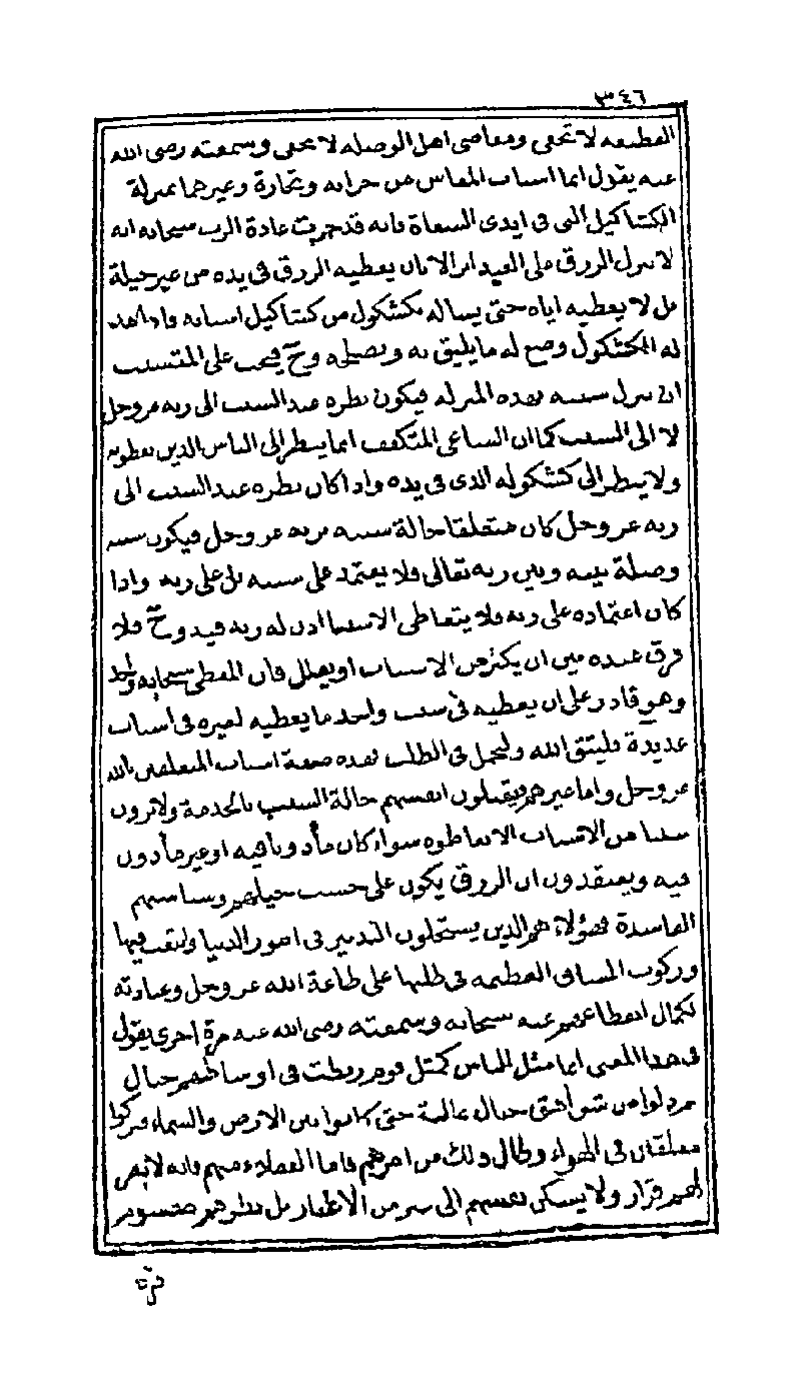 ٣٤٦
القطيعه لا تخفى ومعاصى اهل الوصله لا تخفى وسمعته رضى الله
عنه يقول انما اسباب المعاش من حراثه وتجارة وغيرهما بمنزلة
الكشاكيل التى فى ايدى السعاة فانه قد جرت عادة الرب سبحانه انه
لا ينزل الرزق على العبد ابر الا بان يعطيه الرزق فى يده من غير حيلة
بل لا يعطيه اياه حتى يساله بكشكول من كشاكيل اسبابه فاذا مد
له الكشكول وضع له ما يليق به ويصلحه وح فيجب على المتسبب
ان ينزل سببه بهذه المنزله فيكون نظره عند السبب الى ربه عز وجل
لا الى السبب كما ان الساعى المتكفف انما ينظر الى الناس الذين يعطونه
ولا ينظر الى كشكوله الذى فى يده واذا كان نظره عند السبب الى
ربه عز وجل كان متعلقا حالة سببه بربه عز وجل فيكون سببه
وصلة بينه وبين ربه تعالى فلا يعتمد على سببه بل على ربه واذا
كان اعتماده على ربه فلا يتعاطى الا سببا اذن له ربه فيه وح فلا
فرق عنده بين ان يكثر من الاسباب او يقلل فان المعطى سبحانه واحد
وهو قادر على ان يعطيه فى سبب واحد ما يعطيه لغيره فى اسباب
عديدة فليتق الله وليجمل فى الطلب فهذه صفة اسباب المتعلقين بالله
عز وجل واما غيرهم فيقبلون انفسهم حالة السبب بالخدمة ولا يرون
سببا من الاسباب الا تعاطوه سواء كان مأذونا فيه او غير مأذون
فيه ويعتقدون ان الرزق يكون على حسب حيلهم وسياستهم
الفاسدة فهؤلاء هم الذين يستحلون التدبير فى امور الدنيا والتعب فيها
وركوب المشاق العظيمه فى طلبها على طاعة الله عز وجل وعبادته
لكمال انقطاعهم عنه سبحانه وسمعته رضى الله عنه مرة اخرى يقول
فى هذا المعنى انما مثل الناس كمثل قوم ربطت فى اوساطهم حبال
من شواهق جبال عالية حتى كانوا بين الارض والسماء وتركوا
معلقين فى الهواء وطال ذلك من امرهم فاما العقلاء منهم فانه لا يقر
لهم قرار ولا يسكن نفسهم الى من الاغيار بل نظرهم مقسوم
مرة